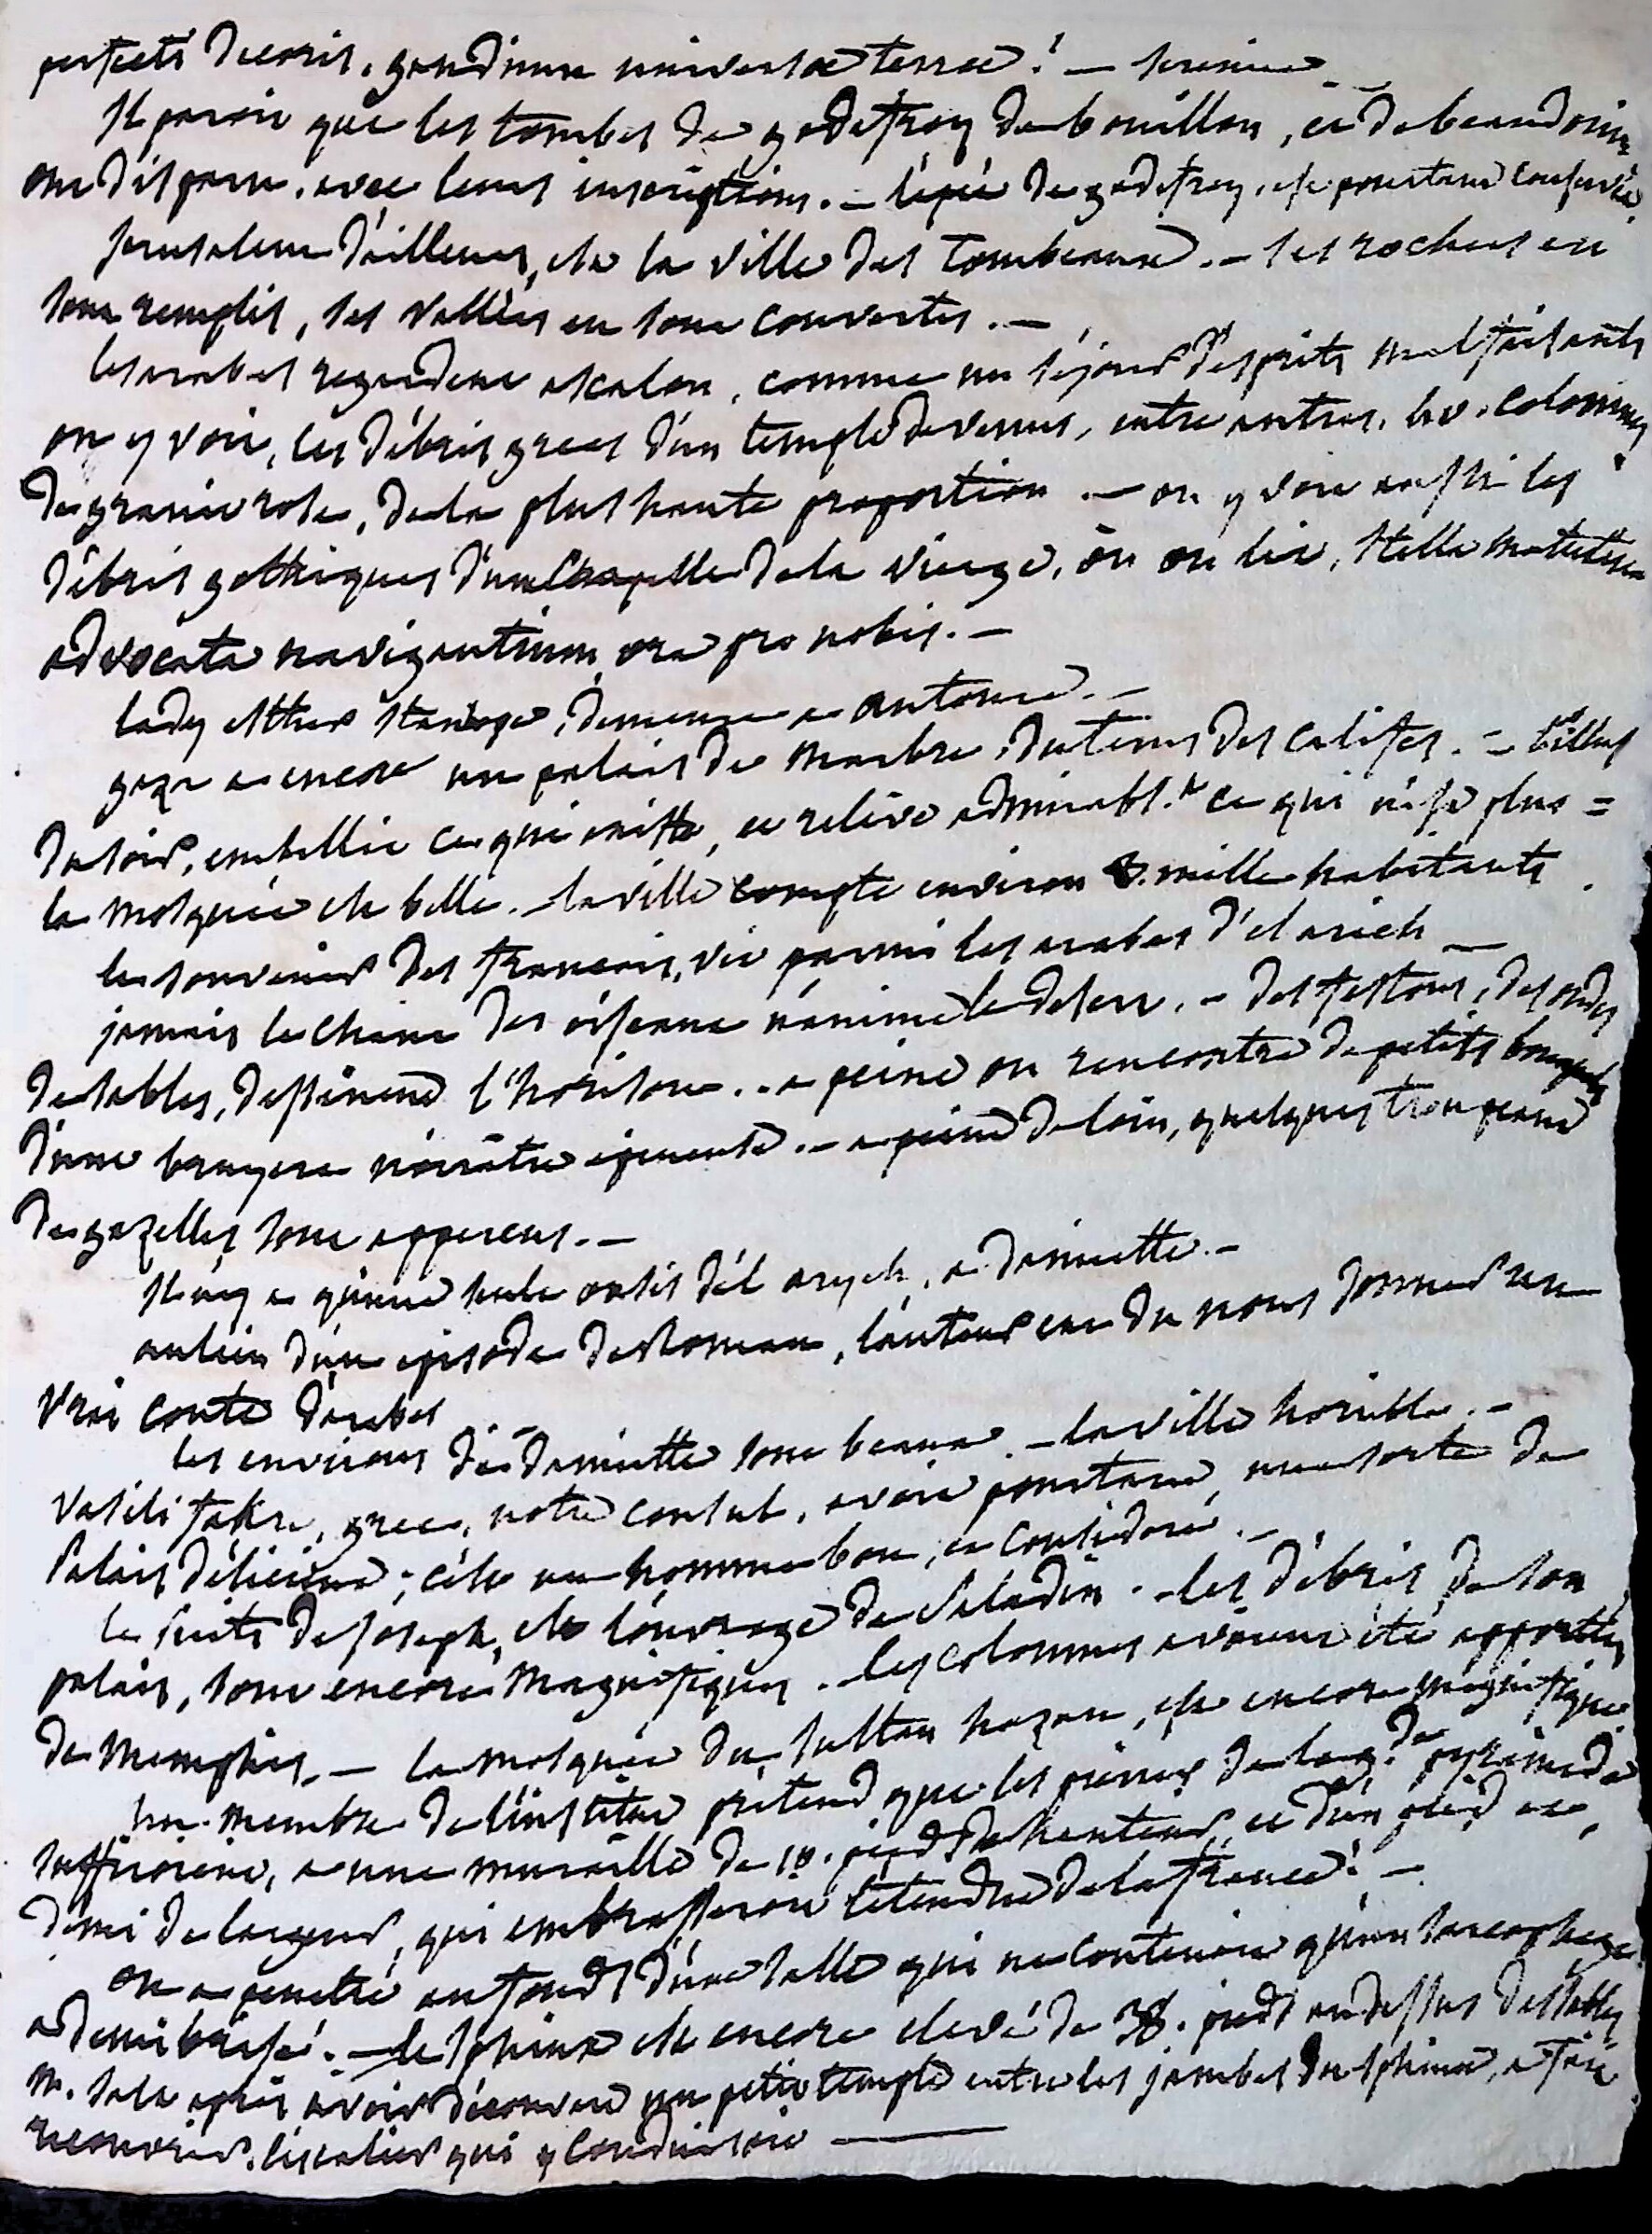 perfecti decoris, gaudium universae terrae! —
Il paroit que les tombes de godefroy de bouillon, et de beaudoin
ont disparu, avec leurs inscriptions. — l'épée de godefroy, est pourtant conservée.
Jerusalem d'ailleurs, est la ville des tombeaux. — ses rochers en
sont remplis, ses vallées en sont couvertes. —
les arabes regardent ascalon, comme un séjour d'esprits malfaisants
on y voit, les débris grecs d'un temple de venus, entre autres, colonnes
de granit rose, de la plus haute proportion. — on y voit aussi les
débris gothiques d'une chapelle de la vierge, où on lit, stella matutina
advocata navigantium, ora pro nobis. —
lady esther stanhope, demeure a antoura. —
gaza a encore un palais de marbre, du tems des califes. —
du soir, embellit ce qui existe, et relève admirabl.t ce qui n'est plus =
la mosquée est belle. — la ville compte environ 8. mille habitants.
le souvenir des français, vit parmi les arabes d'el arich —
jamais le chant des oiseaux n'anime le desert. — des festons, des ondes
de sables, dessinent l'horison. — a peine on rencontre de petits bouquets
d'une bruyere noirâtre épineuse. — a peine de loin, quelques troupeaux
de gazelles sont apperçus. —
Il n'y a qu'une seule oasis d'el arych, a damiette. —
au lieu d'un episode de roman, l'auteur eut du nous donner un
vrai conte d'arabes
les environs de damiette sont beaux. — la ville horrible. —
Vasili fakre, grec, notre consul, avoit pourtant, une sorte de
Palais délicieux; c'est un homme bon, et considéré. —
le puits de Joseph, est l'ouvrage de Saladin. — les débris de son
palais, sont encore magnifiques. — les colonnes avoient été apportées
de Memphis. — la mosquée du sultan hazan, est encore magnifique
un membre de l'institut prétend que les pierres de la g.de pyramide
suffiroient, a une muraille de 10. pieds de hauteur, et d'un pied et
demi de largeur, qui embrasseroit l'étendue de la france! —
on a penetré au fond d'une salle qui ne contenoit qu'un sarcophage
a demi brisé. — le sphinx est encore élevé de 38. pieds au dessus des sables
M. Salt après avoir découvert un petit temple entre les jambes du sphinx, a fait
recouvrir l'escalier qui y conduisoit —